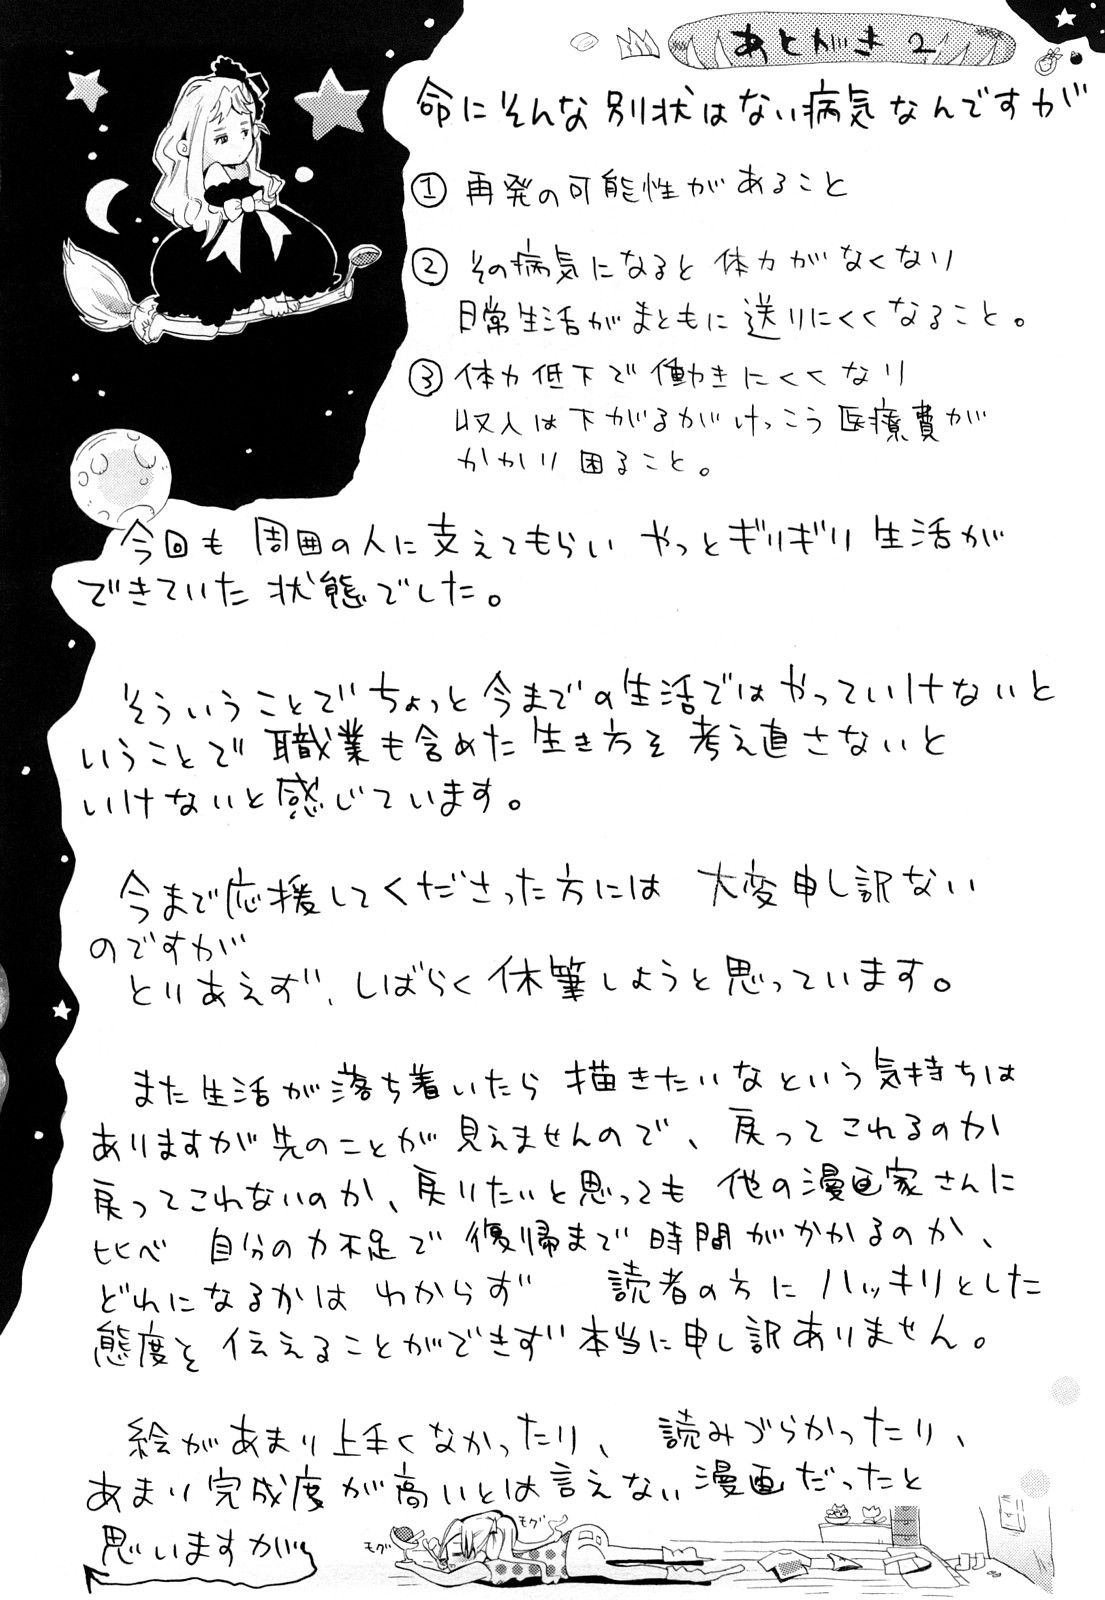 あとがき 2
命にそんな別状はない病気なんですが
① 再発の可能性があること
② その病気になると 体力がなくなり
日常生活がまともに送りにくくなること。
③ 体力低下で働きにくくなり
収入は下がるがけっこう医療費が
かかり困ること。
今回も 周囲の人に支えてもらい やっとギリギリ生活が
できていた状態でした。
そういうことでちょっと今までの生活ではやっていけないと
いうことで 職業も含めた生き方を考え直さないと
いけないと感じています。
今まで応援してくださった方には 大変申し訳ない
のですが
とりあえず、しばらく休筆しようと思っています。
また生活が落ち着いたら 描きたいなという気持ちは
ありますが先のことが見えませんので、戻ってこれるのか
戻ってこれないのか、戻りたいと思っても 他の漫画家さんに
比べ 自分の力不足で 復帰まで時間がかかるのか、
どれになるかは わからず 読者の方に ハッキリとした
態度を 伝えることができず 本当に申し訳ありません。
絵があまり上手くなかったり、 読みづらかったり、
あまり完成度が高いとは言えない漫画だったと
思いますが
モグ
モグ